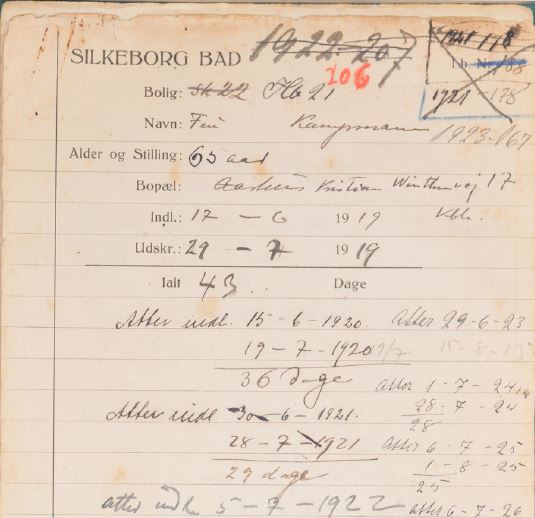 SILKEBORG BAD 1922-207
1921 118
Lb. Nr. 138
106
1921-178
Bolig: Sk 22 Hb 21
Navn: Fru Kampmann
1923-167
Alder og Stilling: 65 aar
Bopæl: Aarhus Kristian Winthersvej 17
Indl.: 17 - 6 1919 Kbh.
Udskr.: 29 - 7 1919
Ialt 43 Dage
Atter indl. 15-6-1920. Atter 29-6-23
19-7-1920 19/7 15-8-23
36 dage
atter 1-7-24
Atter indl 30-6-1921. 28-7-24
28
28-7-1921 atter 6-7-25
29 dage 1-8-25
25
atter indl 5-7-1922 atter 6-7-26